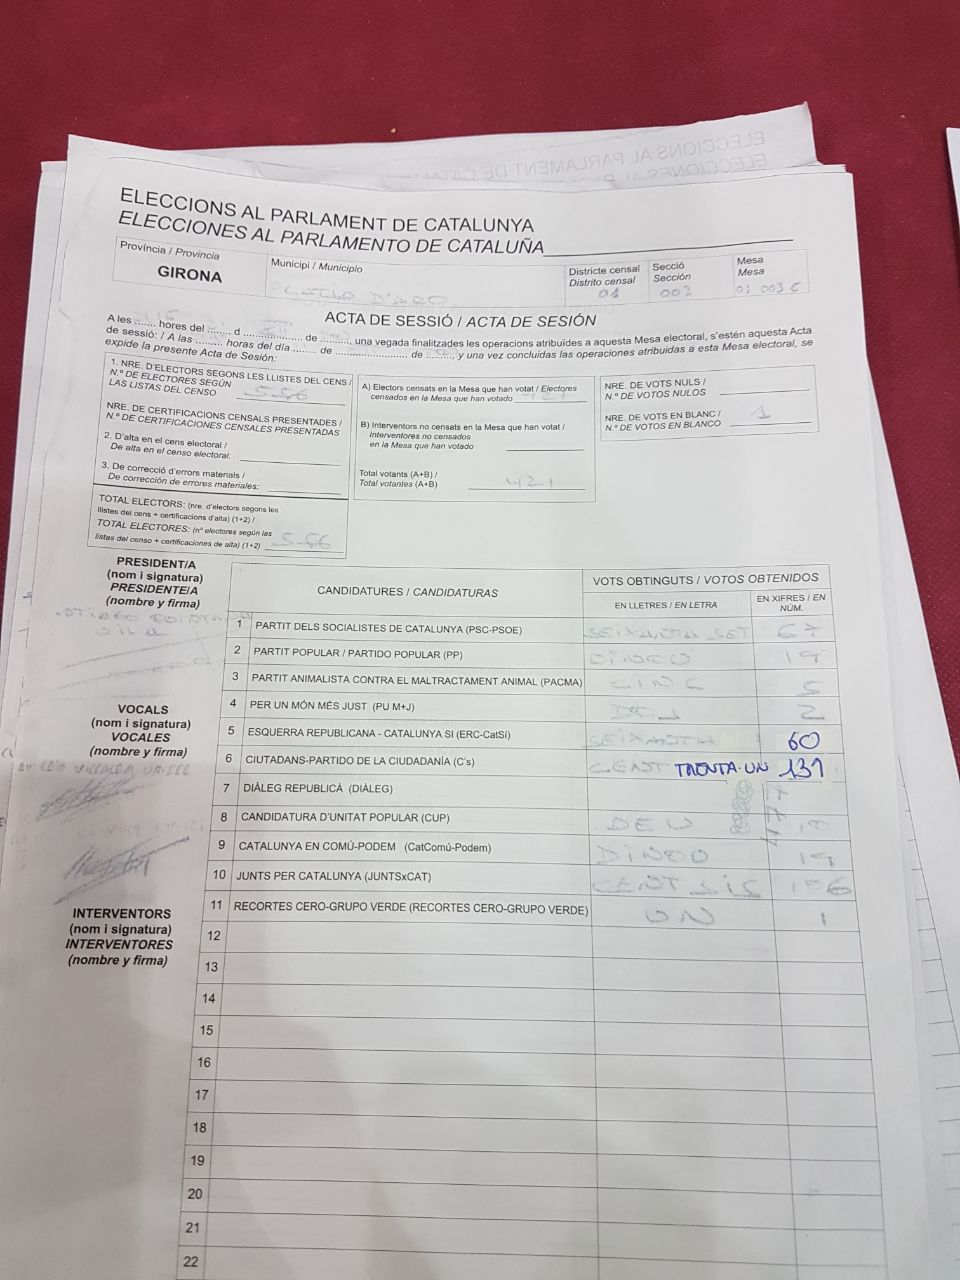 ELECCIONS AL PARLAMENT DE CATALUNYA
ELECCIONES AL PARLAMENTO DE CATALUÑA
Província / Provincia
GIRONA
Municipi / Municipio
D'ARO
Districte censal
Distrito censal
01
Secció
Sección
003
Mesa
Mesa
01 003 C
ACTA DE SESSIÓ / ACTA DE SESIÓN
A les ....... hores del ........ d ................... de ........., una vegada finalitzades les operacions atribuïdes a aquesta Mesa electoral, s'estén aquesta Acta
de sessió: / A las ......... horas del día ........ de ........................ de ........, y una vez concluidas las operaciones atribuidas a esta Mesa electoral, se
expide la presente Acta de Sesión:
1. NRE. D'ELECTORS SEGONS LES LLISTES DEL CENS /
N.º DE ELECTORES SEGÚN
LAS LISTAS DEL CENSO
NRE. DE CERTIFICACIONS CENSALS PRESENTADES /
N.º DE CERTIFICACIONES CENSALES PRESENTADAS
2. D'alta en el cens electoral /
De alta en el censo electoral:
3. De correcció d'errors materials /
De corrección de errores materiales:
TOTAL ELECTORS: (nre. d'electors segons les
llistes del cens + certificacions d'alta) (1+2) /
TOTAL ELECTORES: (nº electores según las
listas del censo + certificaciones de alta) (1+2)
A) Electors censats en la Mesa que han votat / Electores
censados en la Mesa que han votado 421
B) Interventors no censats en la Mesa que han votat /
Interventores no censados
en la Mesa que han votado
Total votants (A+B) /
Total votantes (A+B) 421
NRE. DE VOTS NULS /
N.º DE VOTOS NULOS
NRE. DE VOTS EN BLANC /
N.º DE VOTOS EN BLANCO 1
PRESIDENT/A
(nom i signatura)
PRESIDENTE/A
(nombre y firma)
VOCALS
(nom i signatura)
VOCALES
(nombre y firma)
INTERVENTORS
(nom i signatura)
INTERVENTORES
(nombre y firma)
CANDIDATURES / CANDIDATURAS
VOTS OBTINGUTS / VOTOS OBTENIDOS
EN LLETRES / EN LETRA
EN XIFRES / EN NÚM.
1 PARTIT DELS SOCIALISTES DE CATALUNYA (PSC-PSOE) SEIXANTA SET 67
2 PARTIT POPULAR / PARTIDO POPULAR (PP) DINOU 19
3 PARTIT ANIMALISTA CONTRA EL MALTRACTAMENT ANIMAL (PACMA) CINC 5
4 PER UN MÓN MÉS JUST (PU M+J) DOS 2
5 ESQUERRA REPUBLICANA - CATALUNYA SI (ERC-CatSí) SEIXANTA 60
6 CIUTADANS-PARTIDO DE LA CIUDADANÍA (C's) CENT TRENTA-UN 131
7 DIÀLEG REPUBLICÀ (DIÀLEG)
8 CANDIDATURA D'UNITAT POPULAR (CUP) DEU 10
9 CATALUNYA EN COMÚ-PODEM (CatComú-Podem) DINOU 19
10 JUNTS PER CATALUNYA (JUNTSxCAT) CENT SIS 106
11 RECORTES CERO-GRUPO VERDE (RECORTES CERO-GRUPO VERDE) UN 1
12
13
14
15
16
17
18
19
20
21
22